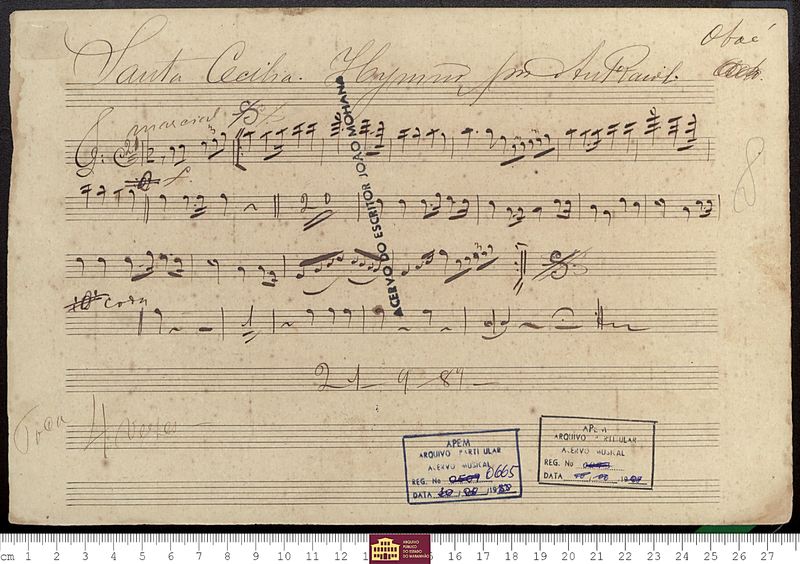 Oboé
Santa Cecilia. Hymno por Ant. Rayol.
marcial
ACERVO DO ESCRITOR JOÃO MOHANA
3
20
8
coda
1
21 - 9 - 89 -
Toca 4 vezes
APEM
ARQUIVO PARTICULAR
ACERVO MUSICAL
REG. No 0665
DATA
APEM
ARQUIVO PARTICULAR
ACERVO MUSICAL
REG. No
DATA
cm 1 2 3 4 5 6 7 8 9 10 11 12 16 17 18 19 20 21 22 23 24 25 26 27
ARQUIVO
PÚBLICO
DO ESTADO
DO MARANHÃO